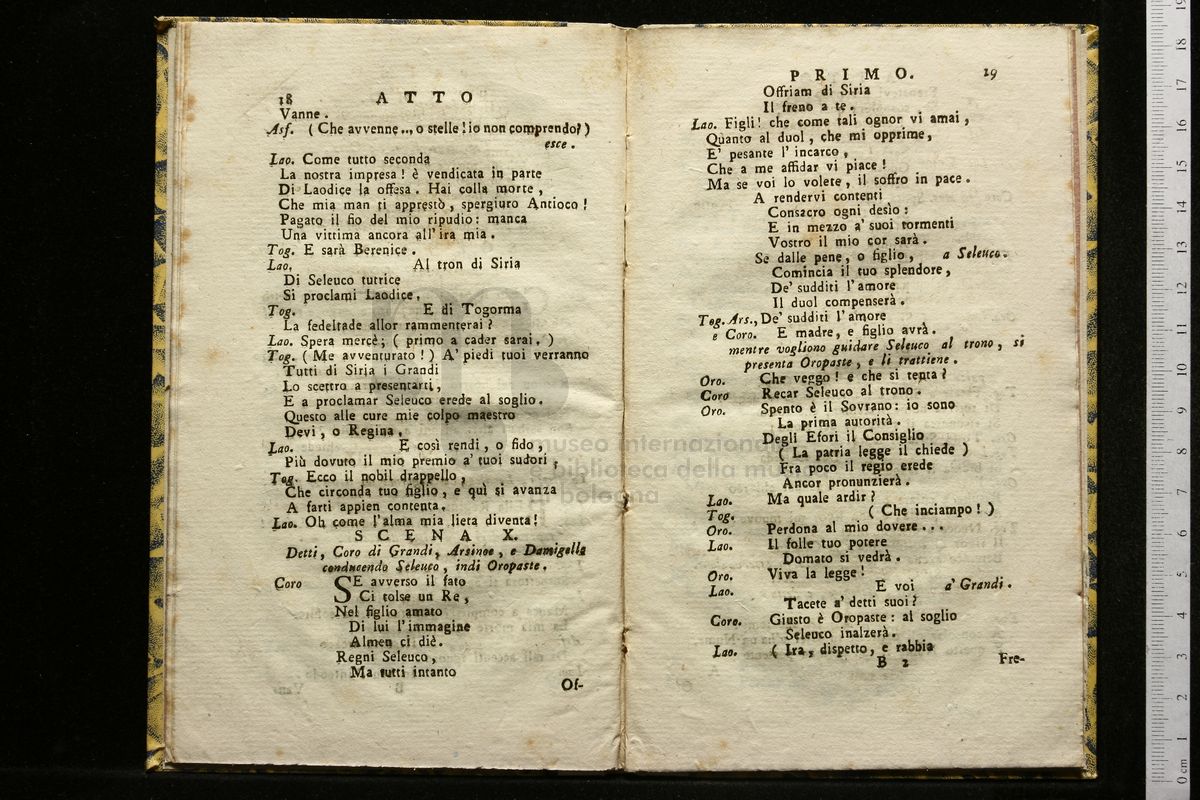 18 ATTO
Vanne.
Asf. (Che avvenne.., o stelle! io non comprendo?)
esce.
Lao. Come tutto seconda
La nostra impresa! è vendicata in parte
Di Laodice la offesa. Hai colla morte,
Che mia man ti apprestò, spergiuro Antioco!
Pagato il fio del mio ripudio: manca
Una vittima ancora all'ira mia.
Tog. E sarà Berenice.
Lao. Al tron di Siria
Di Seleuco tutrice
Si proclami Laodice.
Tog. E di Togorma
La fedeltade allor rammenterai?
Lao. Spera mercè; (primo a cader sarai.)
Tog. (Me avventurato!) A' piedi tuoi verranno
Tutti di Siria i Grandi
Lo scettro a presentarti,
E a proclamar Seleuco erede al soglio.
Questo alle cure mie colpo maestro
Devi, o Regina.
Lao. E così rendi, o fido,
Più dovuto il mio premio a' tuoi sudori,
Tog. Ecco il nobil drappello,
Che circonda tuo figlio, e quì si avanza
A farti appien contenta.
Lao. Oh come l'alma mia lieta diventa!
SCENA X.
Detti, Coro di Grandi, Arsinoe, e Damigelle
conducendo Seleuco, indi Oropaste.
Coro SE avverso il fato
Ci tolse un Re,
Nel figlio amato
Di lui l'immagine
Almen ci diè.
Regni Seleuco,
Ma tutti intanto
Of-
PRIMO. 19
Offriam di Siria
Il freno a te.
Lao. Figli! che come tali ognor vi amai,
Quanto al duol, che mi opprime,
E' pesante l'incarco,
Che a me affidar vi piace!
Ma se voi lo volete, il soffro in pace.
A rendervi contenti
Consacro ogni desìo:
E in mezzo a' suoi tormenti
Vostro il mio cor sarà.
Se dalle pene, o figlio, a Seleuco.
Comincia il tuo splendore,
De' sudditi l'amore
Il duol compenserà.
Tog. Ars., De' sudditi l'amore
e Coro. E madre, e figlio avrà.
mentre vogliono guidare Seleuco al trono, si
presenta Oropaste, e li trattiene.
Oro. Che veggo! e che si tenta?
Coro Recar Seleuco al trono.
Oro. Spento è il Sovrano: io sono
La prima autorità.
Degli Efori il Consiglio
(La patria legge il chiede)
Fra poco il regio erede
Ancor pronunzierà.
Lao. Ma quale ardir?
Tog. (Che inciampo!)
Oro. Perdona al mio dovere...
Lao. Il folle tuo potere
Domato si vedrà.
Oro. Viva la legge!
Lao. E voi a' Grandi.
Tacete a' detti suoi?
Coro. Giusto è Oropaste: al soglio
Seleuco inalzerà.
Lao. (Ira, dispetto, e rabbia
B 2 Fre-
museo internazionale
biblioteca della mu
bologna
0 cm 1 2 3 4 5 6 7 8 9 10 11 12 13 14 15 16 17 18 19